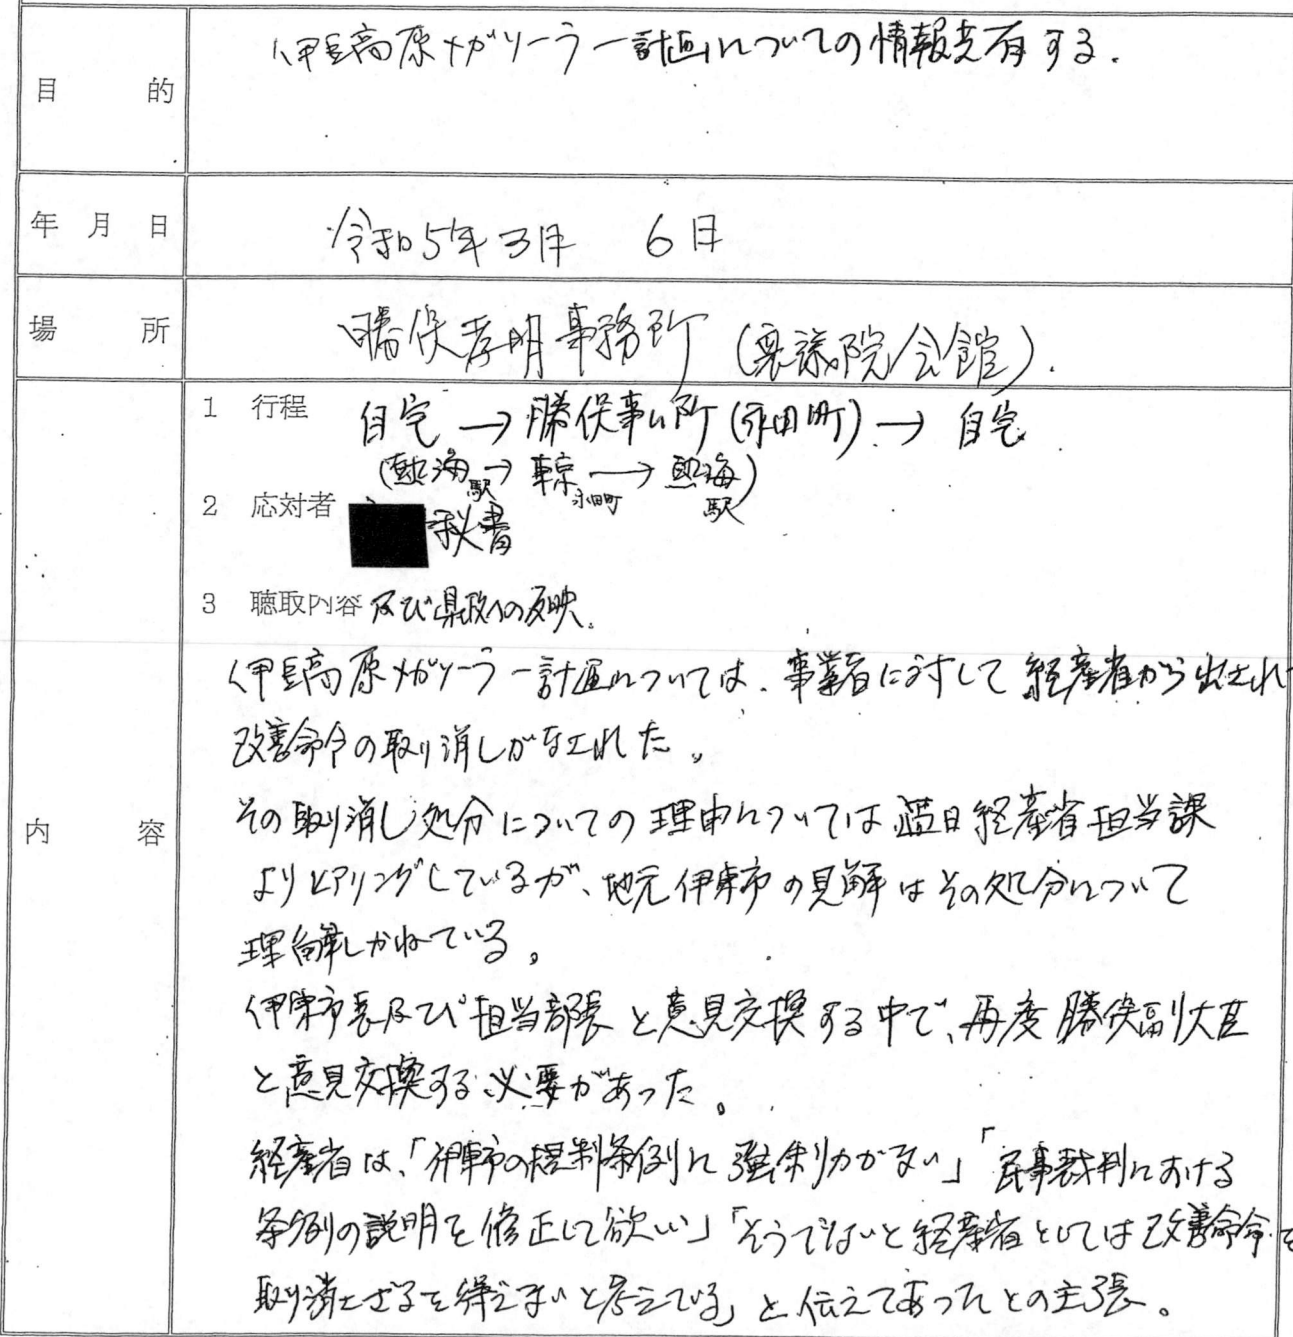 伊豆高原メガソーラー計画についての情報共有する.
目 的
年 月 日
令和5年3月 6日
場 所
勝俣孝明事務所 (衆議院会館).
1 行程 自宅 → 勝俣事ム所 (永田町) → 自宅
(熱海駅 → 東京 永田町 → 熱海駅)
2 応対者 秘書
3 聴取内容 及び県政への反映.
内 容
伊豆高原メガソーラー計画については、事業者に対して経産省から出され
改善命令の取り消しがなされた。
その取り消し処分についての理由については過日経産省担当課
よりヒアリングしているが、地元伊東市の見解はその処分について
理解しかねている。
伊東市長及び担当部長と意見交換する中で、再度勝俣副大臣
と意見交換する必要があった。
経産省は、「伊東市の規制条例に強制力がない」「民事裁判における
条例の説明を修正して欲しい」「そうでないと経産省としては改善命令を
取り消さざるを得ないと考えている」と伝えてあったとの主張。